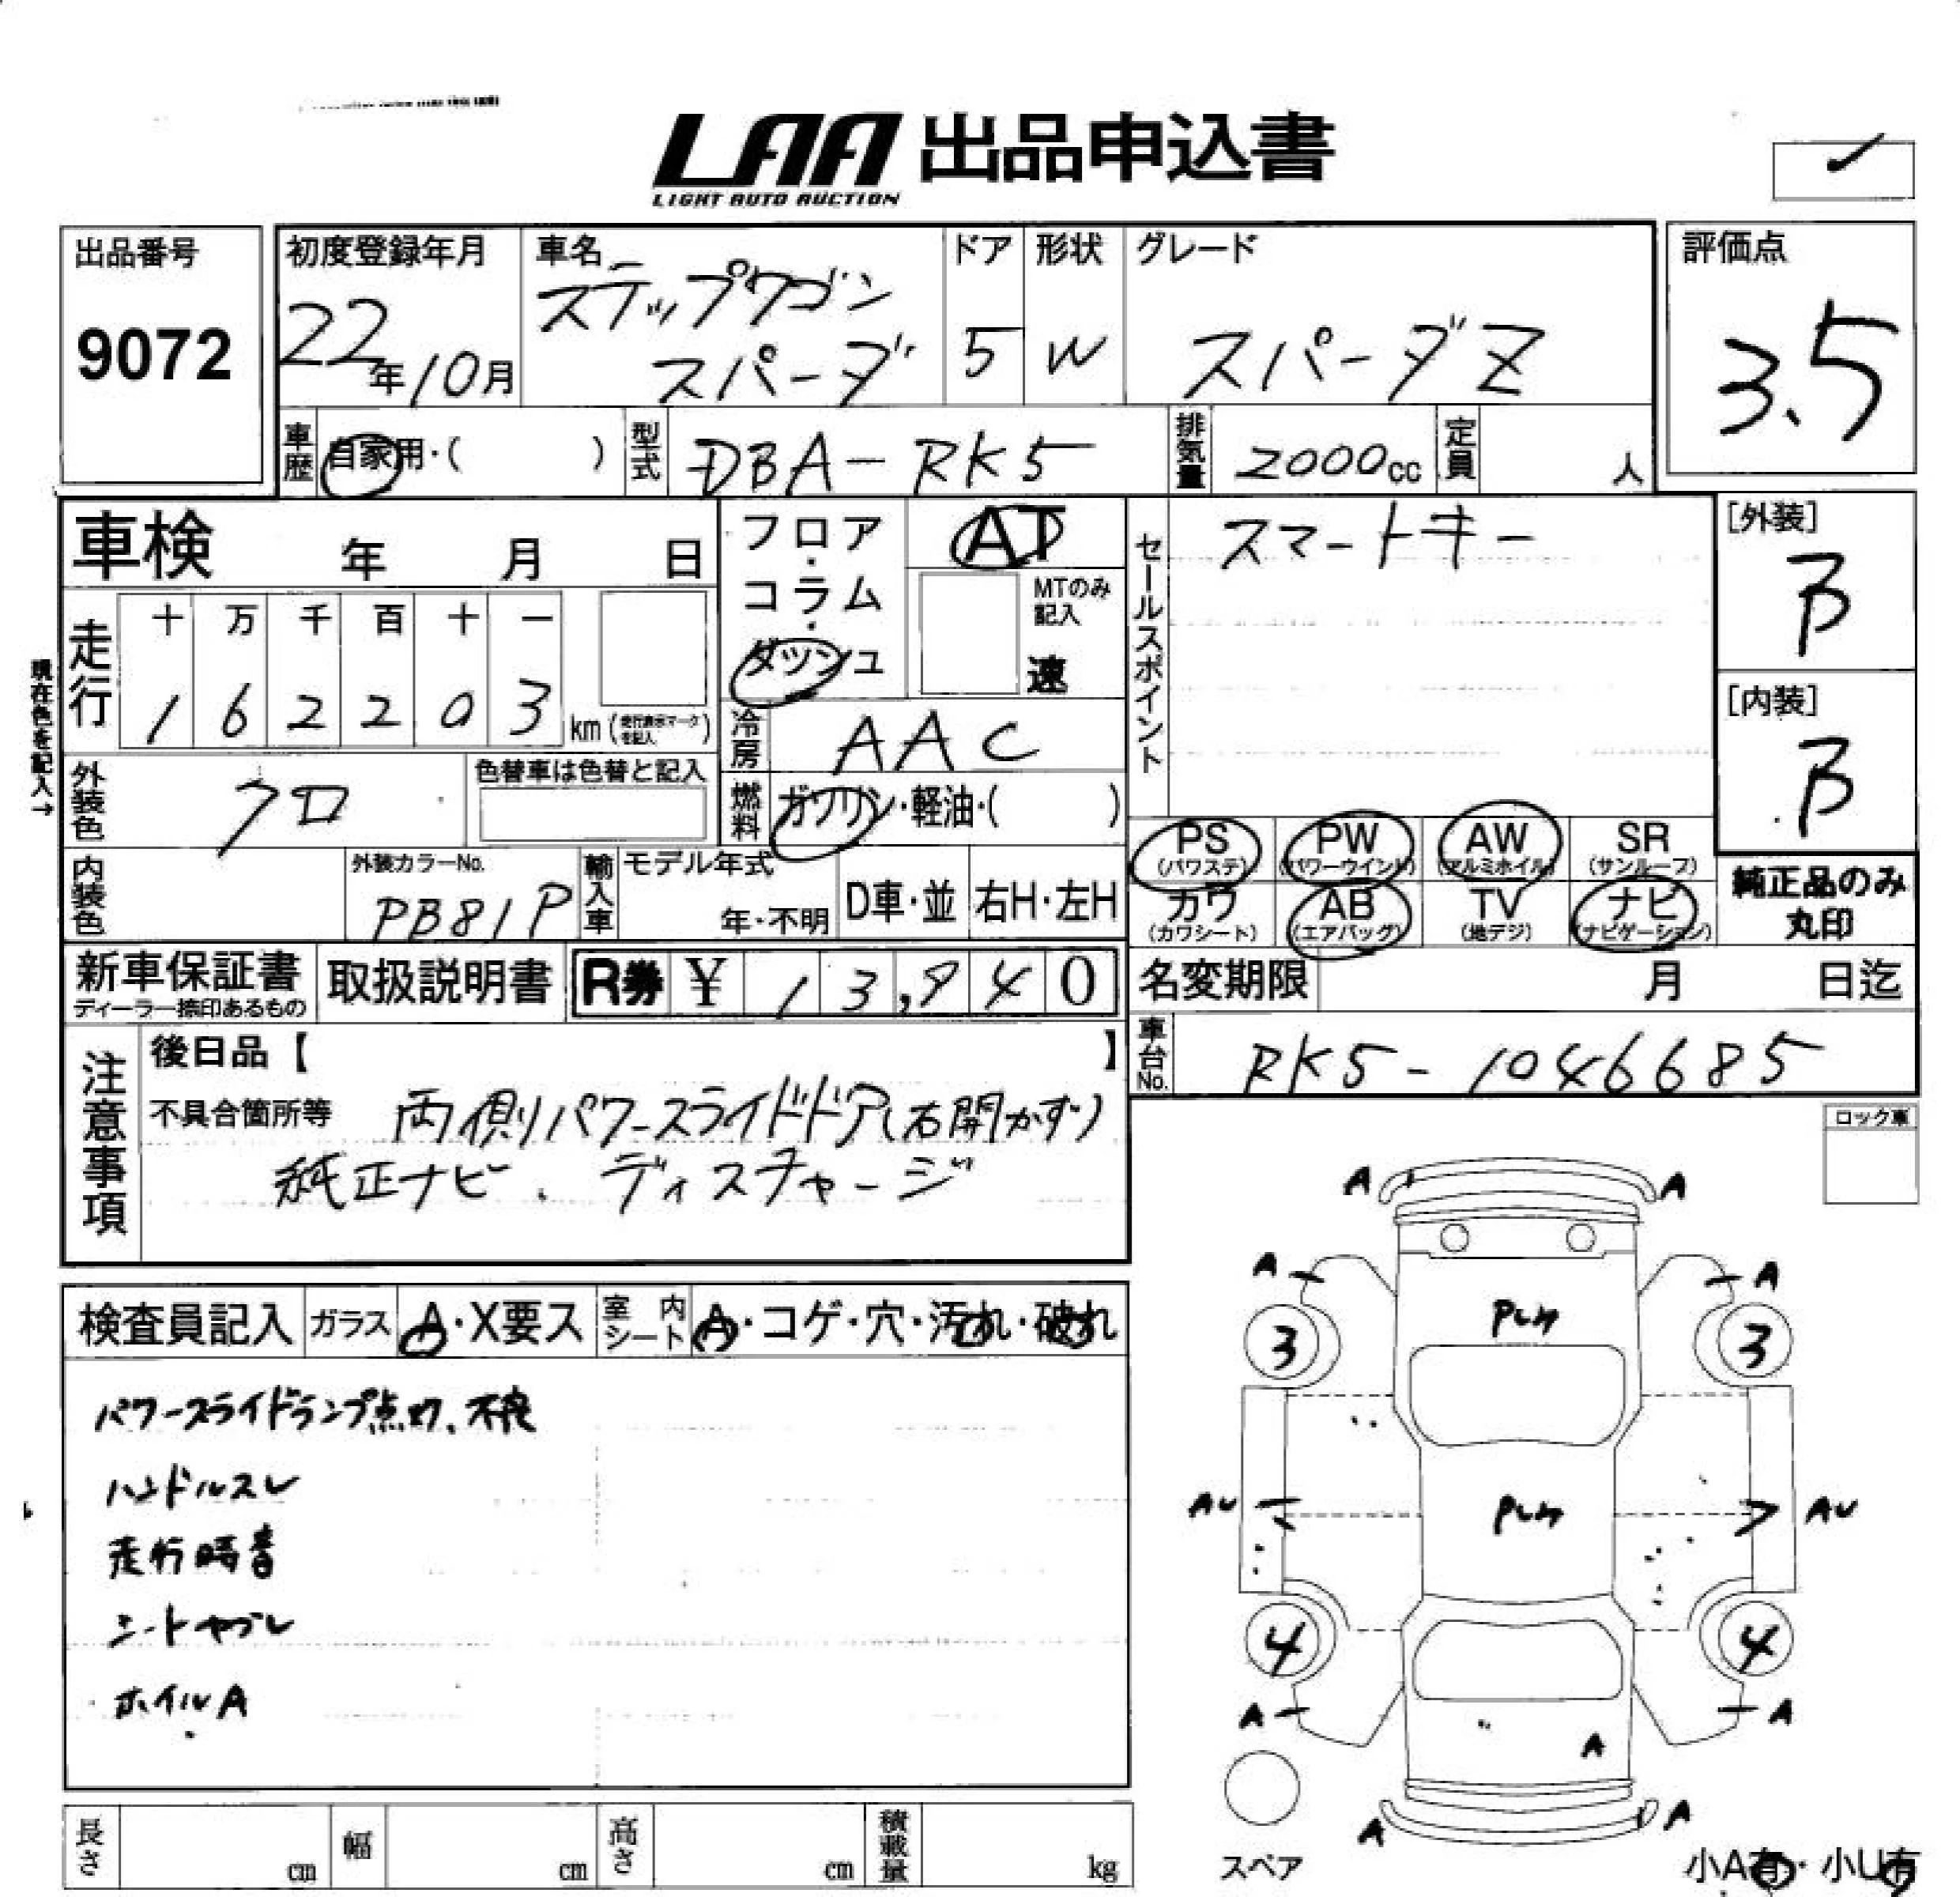 LAA 出品申込書
LIGHT AUTO AUCTION
出品番号
9072
初度登録年月
22年10月
車名
ステップワゴン
スパーダ
ドア
5
形状
W
グレード
スパーダZ
評価点
3.5
車歴
自家用・( )
型式
DBA-RK5
排気量
2000cc
定員
人
現在色を記入→
車検 年 月 日
走行
十 万 千 百 十 一
1 6 2 2 0 3 km (走行表示マークを記入)
フロア・
コラム・
ダッシュ
AT
MTのみ
記入
速
冷房
AAC
燃料
ガソリン・軽油・( )
外装色
クロ
色替車は色替と記入
内装色
外装カラーNo.
PB81P
輸入車
モデル年式
年・不明
D車・並
右H・左H
セールスポイント
スマートキー
[外装]
B
[内装]
B
PS
(パワステ)
PW
(パワーウインド)
AW
(アルミホイル)
SR
(サンルーフ)
カワ
(カワシート)
AB
(エアバッグ)
TV
(地デジ)
ナビ
(ナビゲーション)
純正品のみ
丸印
新車保証書
ディーラー捺印あるもの
取扱説明書
R券 ¥ 13,940
名変期限 月 日迄
車台No.
RK5-1046685
注意事項
後日品【 】
不具合箇所等 両側パワースライドドア(右開かず)
純正ナビ、ディスチャージ
ロック車
検査員記入
ガラス
A・X要ス
室内
シート
A・コゲ・穴・汚れ・破れ
パワースライドランプ点灯、不良
ハンドルスレ
走行時音
シートヤブレ
ホイルA
A A
A A
3 3
AU AU
4 4
A A
A
A A
スペア
小A有・小U有
長さ cm
幅 cm
高さ cm
積載量 kg